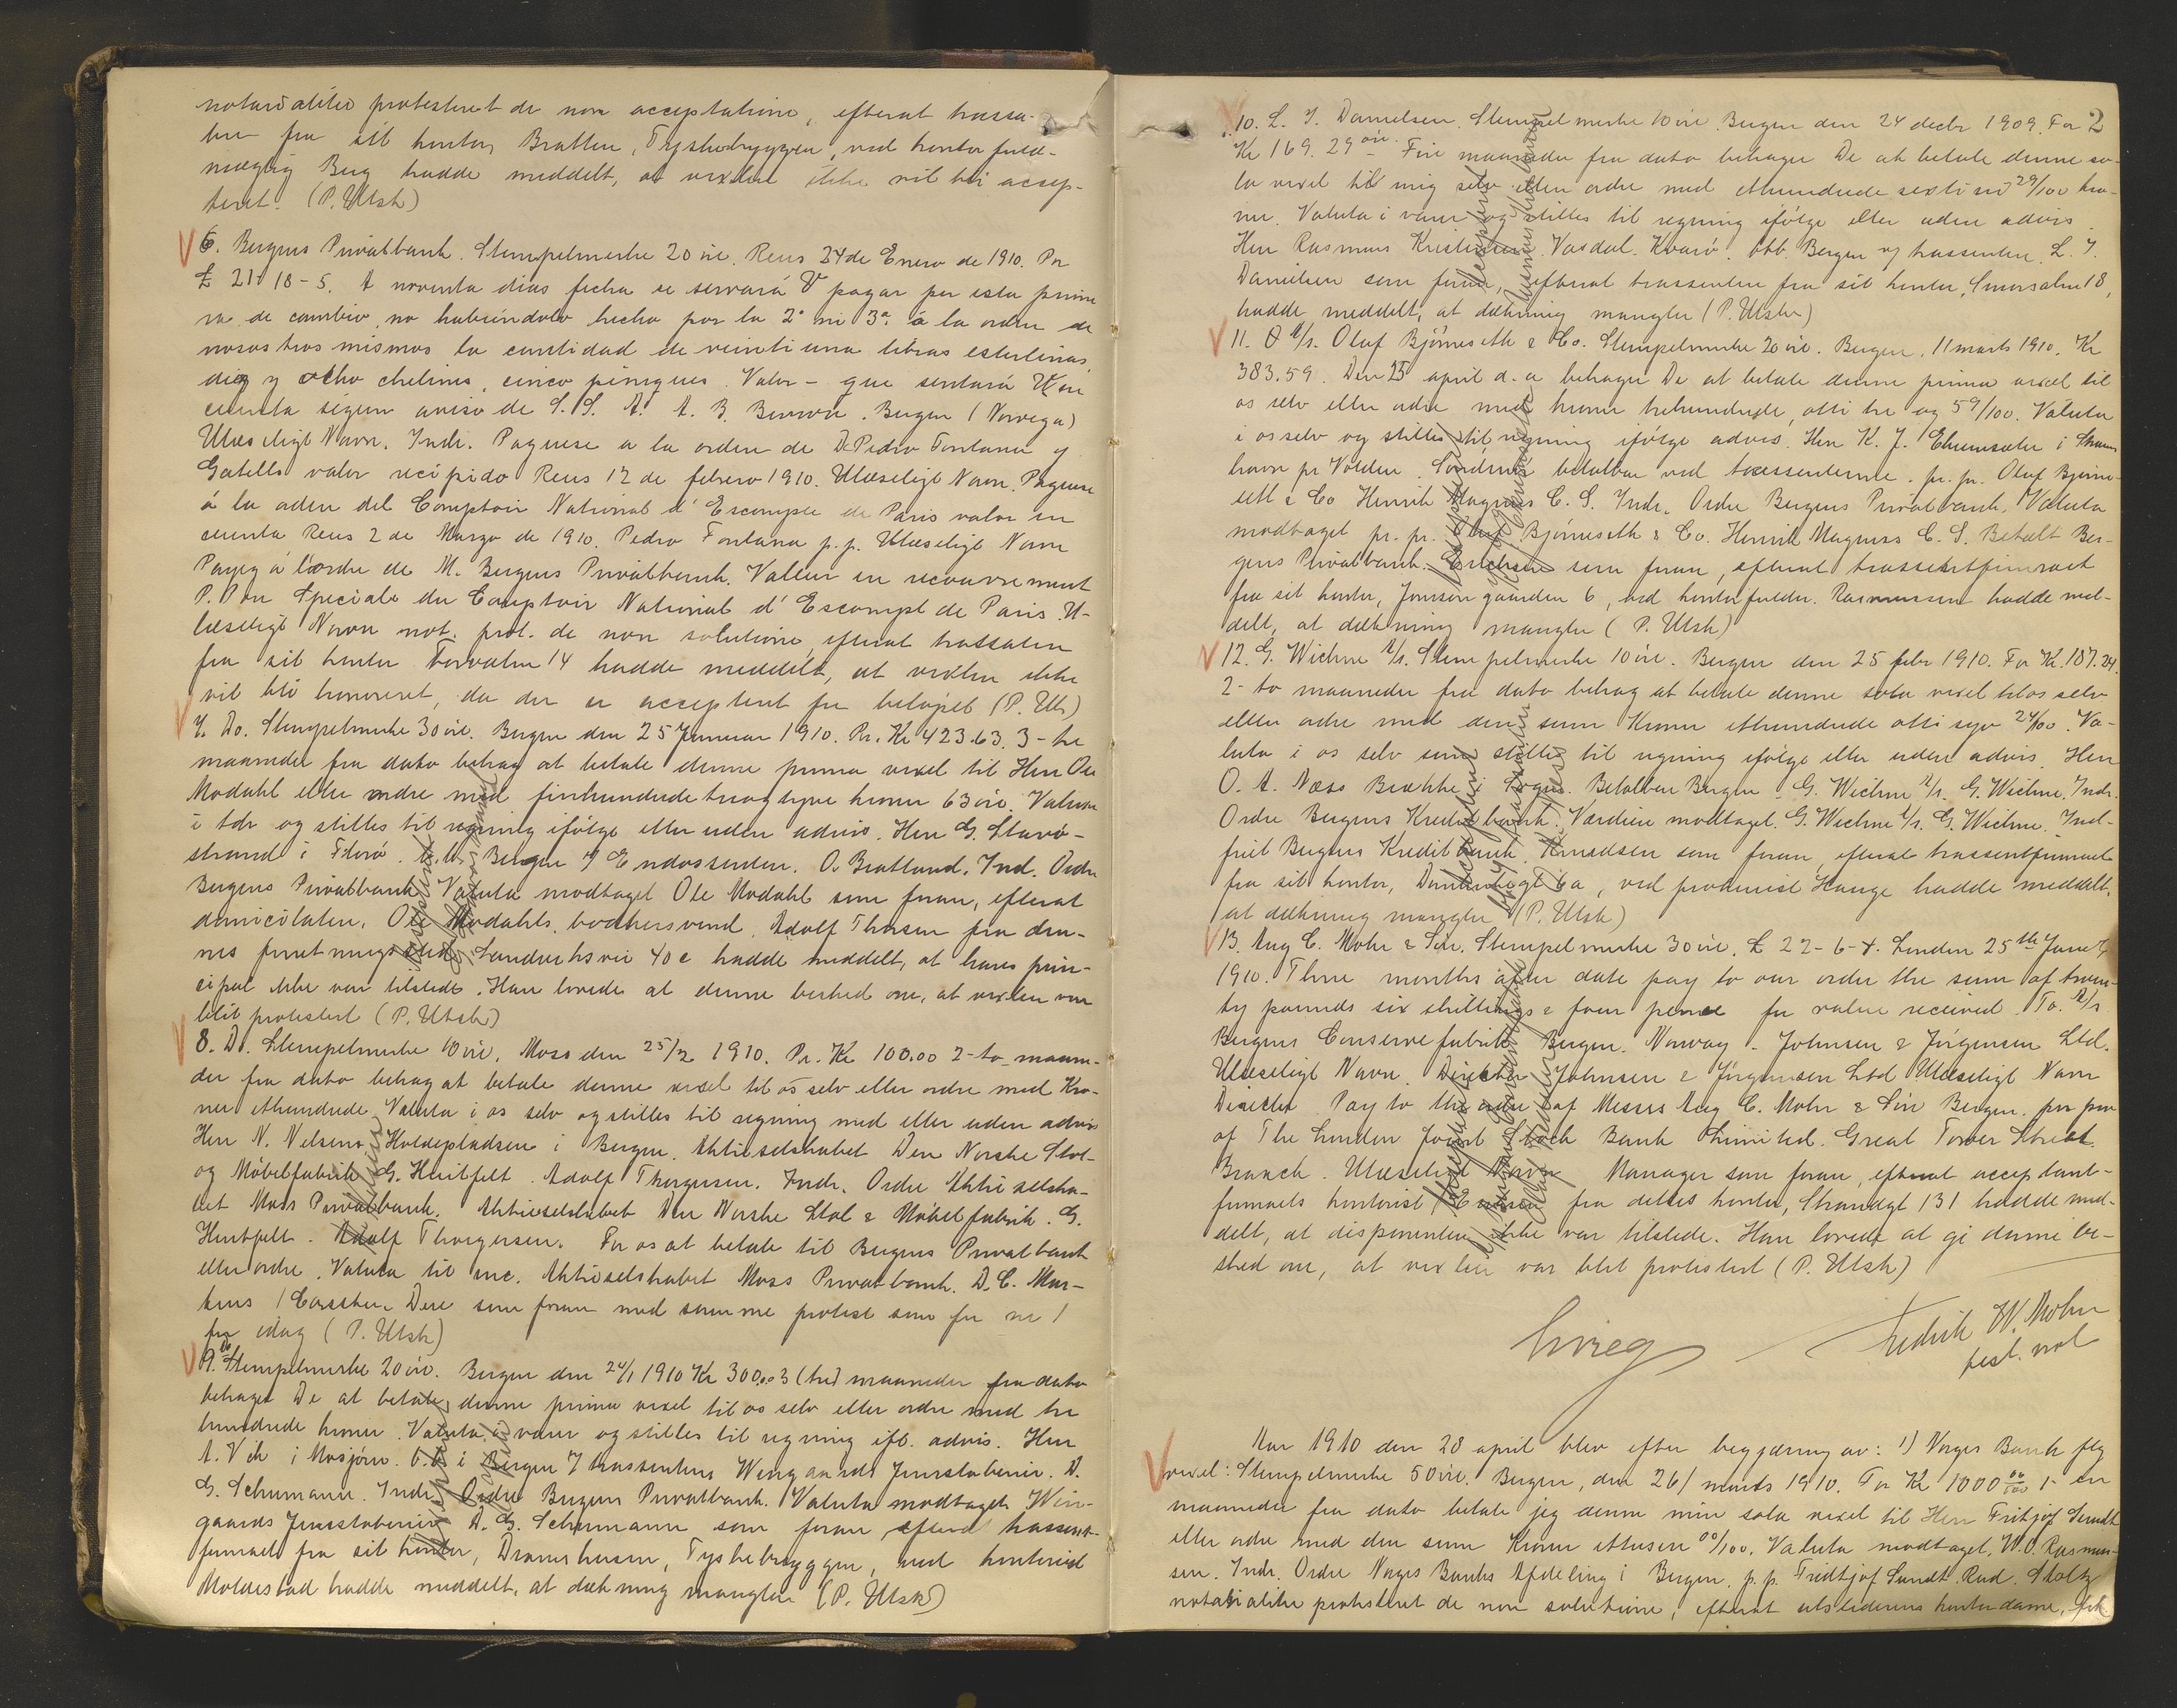 notarialiter protesteret de non acceptatione, efterat trassa-
ten fra sit kontor, Bratten, Tyskebryggen, ved kontorfuld-
mægtig Berg hadde meddelt, at vexelen ikke vil bli accep-
teret. (P. Utsk)
6. Bergens Privatbank. Stempelmerke 20 øre. Reus 24 de Enero de 1910. Por
£ 21 18-5. A noventa dias fecha se servará V pagar por esta prime
ra de cambio, no habiéndolo hecho por la 2ª ni 3ª. á la orden de
nosostros mismos la cantidad de veintiuna libras esterlinas,
diez y ocho chelines, cinco peniques. Valor - que sentará V en
cuenta según aviso de S. S. A. A. B. Bergen (Noruega)
Ulæseligt Navn. Indr. Paguese a la orden de D. Pedro Fontana y
Gatells valor recipido Reus 12 de febrero 1910. Ulæseligt Navn. Paguese
á la orden del Comptoir National d'Escompte de Paris valor en
cuenta Reus 2 de Marzo de 1910. Pedro Fontana p.p. Ulæseligt Navn
Payez á l'ordre de M. Bergens Privatbank. Valeur en recouvrement
P. Pon Speciale du Comptoir National d'Escompt de Paris. U-
læseligt Navn not. prot. de non solutione, efterat trassaten
fra sit kontor Torvalm 14 hadde meddelt, at vexlen ikke
vil bli honoreret, da der er acceptert for beløpet (P. Uts)
7. Do. Stempelmerke 30 øre. Bergen den 25 Januar 1910. Pr. Kr 423.63. 3 - tre
maaneder fra dato behag at betale denne prima vexel til Herr Ole
Modahl eller ordre med firehundrede treogtyve kroner 63 øre. Valuta
i do og stilles til regning ifølge eller uden advis. Herr G. Stavø-
strand i Florø. btb. Bergen h/ Endossenten. O. Bratland. Ind. Ordre
Bergens Privatbank Valuta modtaget Ole Modahl som foran, efterat
domicilaten, Ole Modahls bodkersvend Adolf Thorsen fra den-
nes forretningssted Sandviksvei 40 c hadde meddelt, at hans prin-
cipal ikke var tilstede. Han lovede at denne besked om, at vexlen var
blit protestert (P. Utsk)
8. Do. Stempelmerke 10 øre. Moss den 25/2 1910. Pr. Kr 100.00 2 - to - maane-
der fra dato behag at betale denne vexel til os selv eller ordre med Kro-
ner ethundrede. Valuta i os selv og stilles til regning med eller uden advis
Herr N. Nelsens, Holdepladsen i Bergen. Aktieselskabet Den Norske Stol-
og Møbelfabrik G. Huitfelt. Adolf Thorgersen. Indr. Ordre Aktieselska-
bet Moss Privatbank. Aktieselskabet Den Norske Stol & Møbelfabrik. G.
Huitfelt. Adolf Thorgersen. For os at betale til Bergens Privatbank
eller ordre. Valuta til inc. Aktieselskabet Moss Privatbank. D. C. Mar-
som foran med samme protest som for nr 1
for idag (P. Utsk)
9. Do Stempelmerke 20 øre. Bergen den 24/1 1910 Kr 300.00 3 (tre) maaneder fra dato
behager De at betale denne prima vexel til os selv eller ordre med tre
hundrede kroner. Valuta i varer og stilles til regning ifl. advis. Herr
A. Vik i Mosjøen. btb i Bergen h/ trassenten Wingaards Jernstøberi. D.
G. Schumann. Indr. Ordre Bergens Privatbank. Valuta modtaget Win-
gaards Jernstøberi D. G. Schumann som foran efterat trassent-
firmaet fra sit kontor, Dramshusen, Tyskebryggen, ved kontorist
Moldestad hadde meddelt, at dækning mangler (P. Utsk)
2
10. L. J. Danielsen. Stempelmerke 10 øre. Bergen den 24 decbr 1909. For
Kr 169.29 øre. Fire maaneder fra dato behager De at betale denne so-
la vexel til mig selv eller ordre med ethundrede sexti ni 29/100 kro-
ner. Valuta i varer og stilles til regning ifølge eller uden advis.
Herr Rasmus Kristiansen. Vasdal. Kvarø. btb. Bergen h/ trassenten L. J.
Danielsen som foran, efterat trassenten fra sit kontor, Smørsalm 18,
hadde meddelt, at dækning mangler (P. Utsk)
11. A/s. Oluf Bjørneseth & Co. Stempelmerke 20 øre. Bergen, 11 marts 1910. Kr
383.59. Den 25 april d. a. behager De at betale denne prima vexel til
os selv eller ordre med kroner trehundrede, otti tre og 59/100. Valuta
i os selv og stilles til regning ifølge advis. Herr K. J.
havn pr Volden. Søndmør betalbar ved trassenterne. pr. pr. Oluf Bjørne-
seth & Co Henrik Magnus C. S. Indr. Ordre Bergens Privatbank. Valuta
modtaget pr. pr. Oluf Bjørneseth & Co. Henrik Magnus C. S. Betalt Ber-
gens Privatbank. Erichsen som foran, efterat trassentfirmaet
fra sit kontor, Jonsvorgaarden 6, ved kontorfuldm. Rasmussen hadde med-
delt, at dækning mangler (P. Utsk)
12. G. Wichne A/s. Stempelmerke 10 øre. Bergen den 25 febr 1910. For Kr. 187.24
2 - to maaneder fra dato behag at betale denne sola vexel til os selv
eller ordre med den sum Kroner ethundrede otti syv 24/100. Va-
luta i os selv som stilles til regning ifølge eller uden advis. Herr
O. A. Næss Brække i Sogn. Betalbar Bergen. G. Wichne A/s. G. Wichne. Indr.
Ordre Bergens Kreditbank. Værdien modtaget. G. Wichne A/s. G. Wichne. Ind-
friet Bergens Kreditbank. Knudsen som foran, efterat trassentfirmaet
fra sit kontor, 6a, ved prokurist Hauge hadde meddelt,
at dækning mangler (P. Utsk)
13. Aug C. Mohr & Søn. Stempelmerke 30 øre. £ 22-6-4. London 25th Jany
1910. Three months after date pay to our order the sum of twen-
ty pounds six shillings & four pence for value received. To. A/s
Bergens Conservefabrik Bergen. Norway - Johnsen & Jørgensen Ltd.
Ulæseligt Navn. Director Johnsen & Jørgensen Ltd Ulæseligt Navn
Director. Pay to the order of Messrs Aug C. Mohr & Søn Bergen. for pro
of The London Joint Stock Bank Limited. Great Tower Street
Branch. Ulæseligt Navn Manager som foran, efterat acceptant-
firmaets kontorist fra dettes kontor, Strandgt 131 hadde med-
delt, at disponenten ikke var tilstede. Han lovede at gi denne be-
sked om, at vexlen var blit protestert (P. Utsk)
Fredrik W. Mohn
Aar 1910 den 28 april blev efter begjæring av: 1) Norges Bank flg
vexel: Stempelmerke 50 øre. Bergen, den 26/ marts 1910. For Kr 1000 00/100 1 - en
maaneder fra dato betale jeg denne min sola vexel til Herr Fritjof Sundt
eller ordre med den sum Kroner ettusen 00/100. Valuta modtaget. W. O. Rasmus-
sen. Indr. Ordre Norges Banks Afdeling i Bergen. p.p. Fridtjof Sundt. Rud. Stoltz
notarialiter protesteret de non solutione, efterat utstederens kontordame, frk